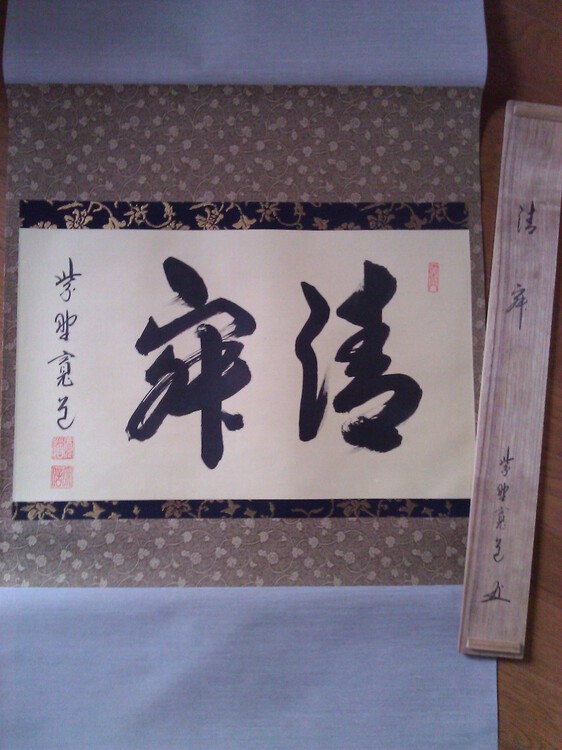 清寂
紫野寛道
清寂
紫野寛道